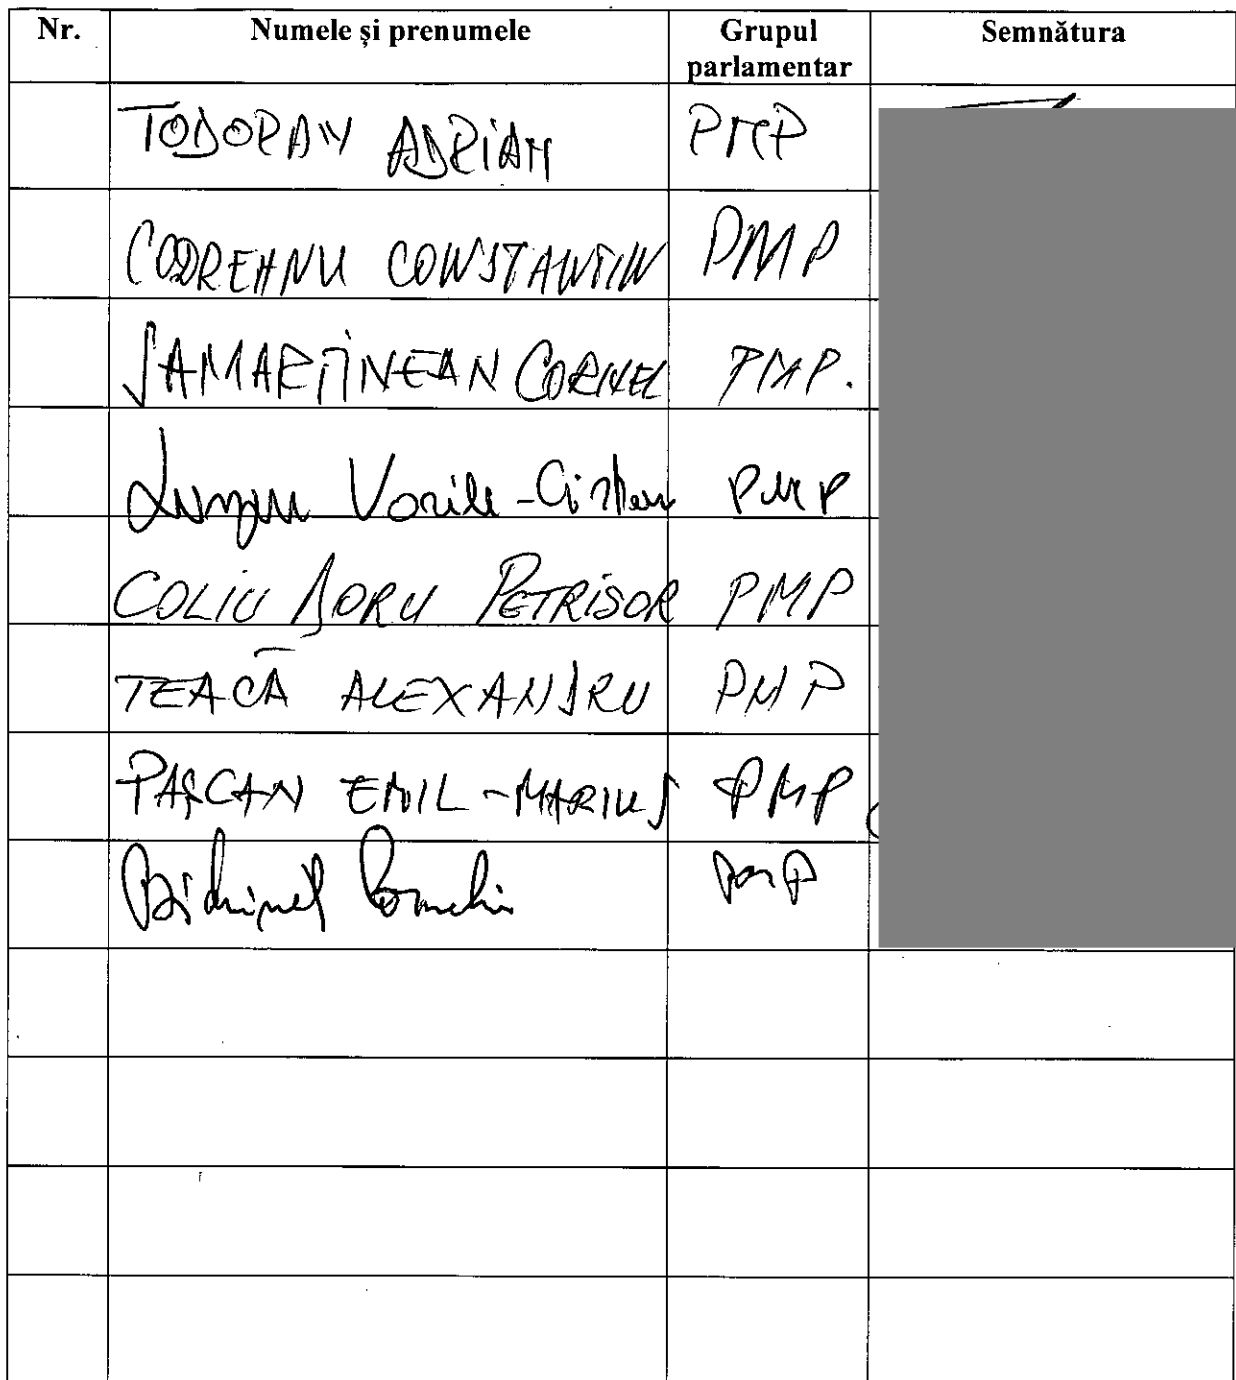 Nr. Numele și prenumele Grupul parlamentar Semnătura
TODORAN ADRIAN PMP
CODREANU CONSTANTIN PMP
SAMARTINEAN CORNEL PMP.
Lungu Vasile-Cristian PMP
COLIU DORU PETRISOR PMP
TEACĂ ALEXANDRU PMP
PAȘCAN EMIL-MARIUS PMP
Bichineț Corneliu PMP